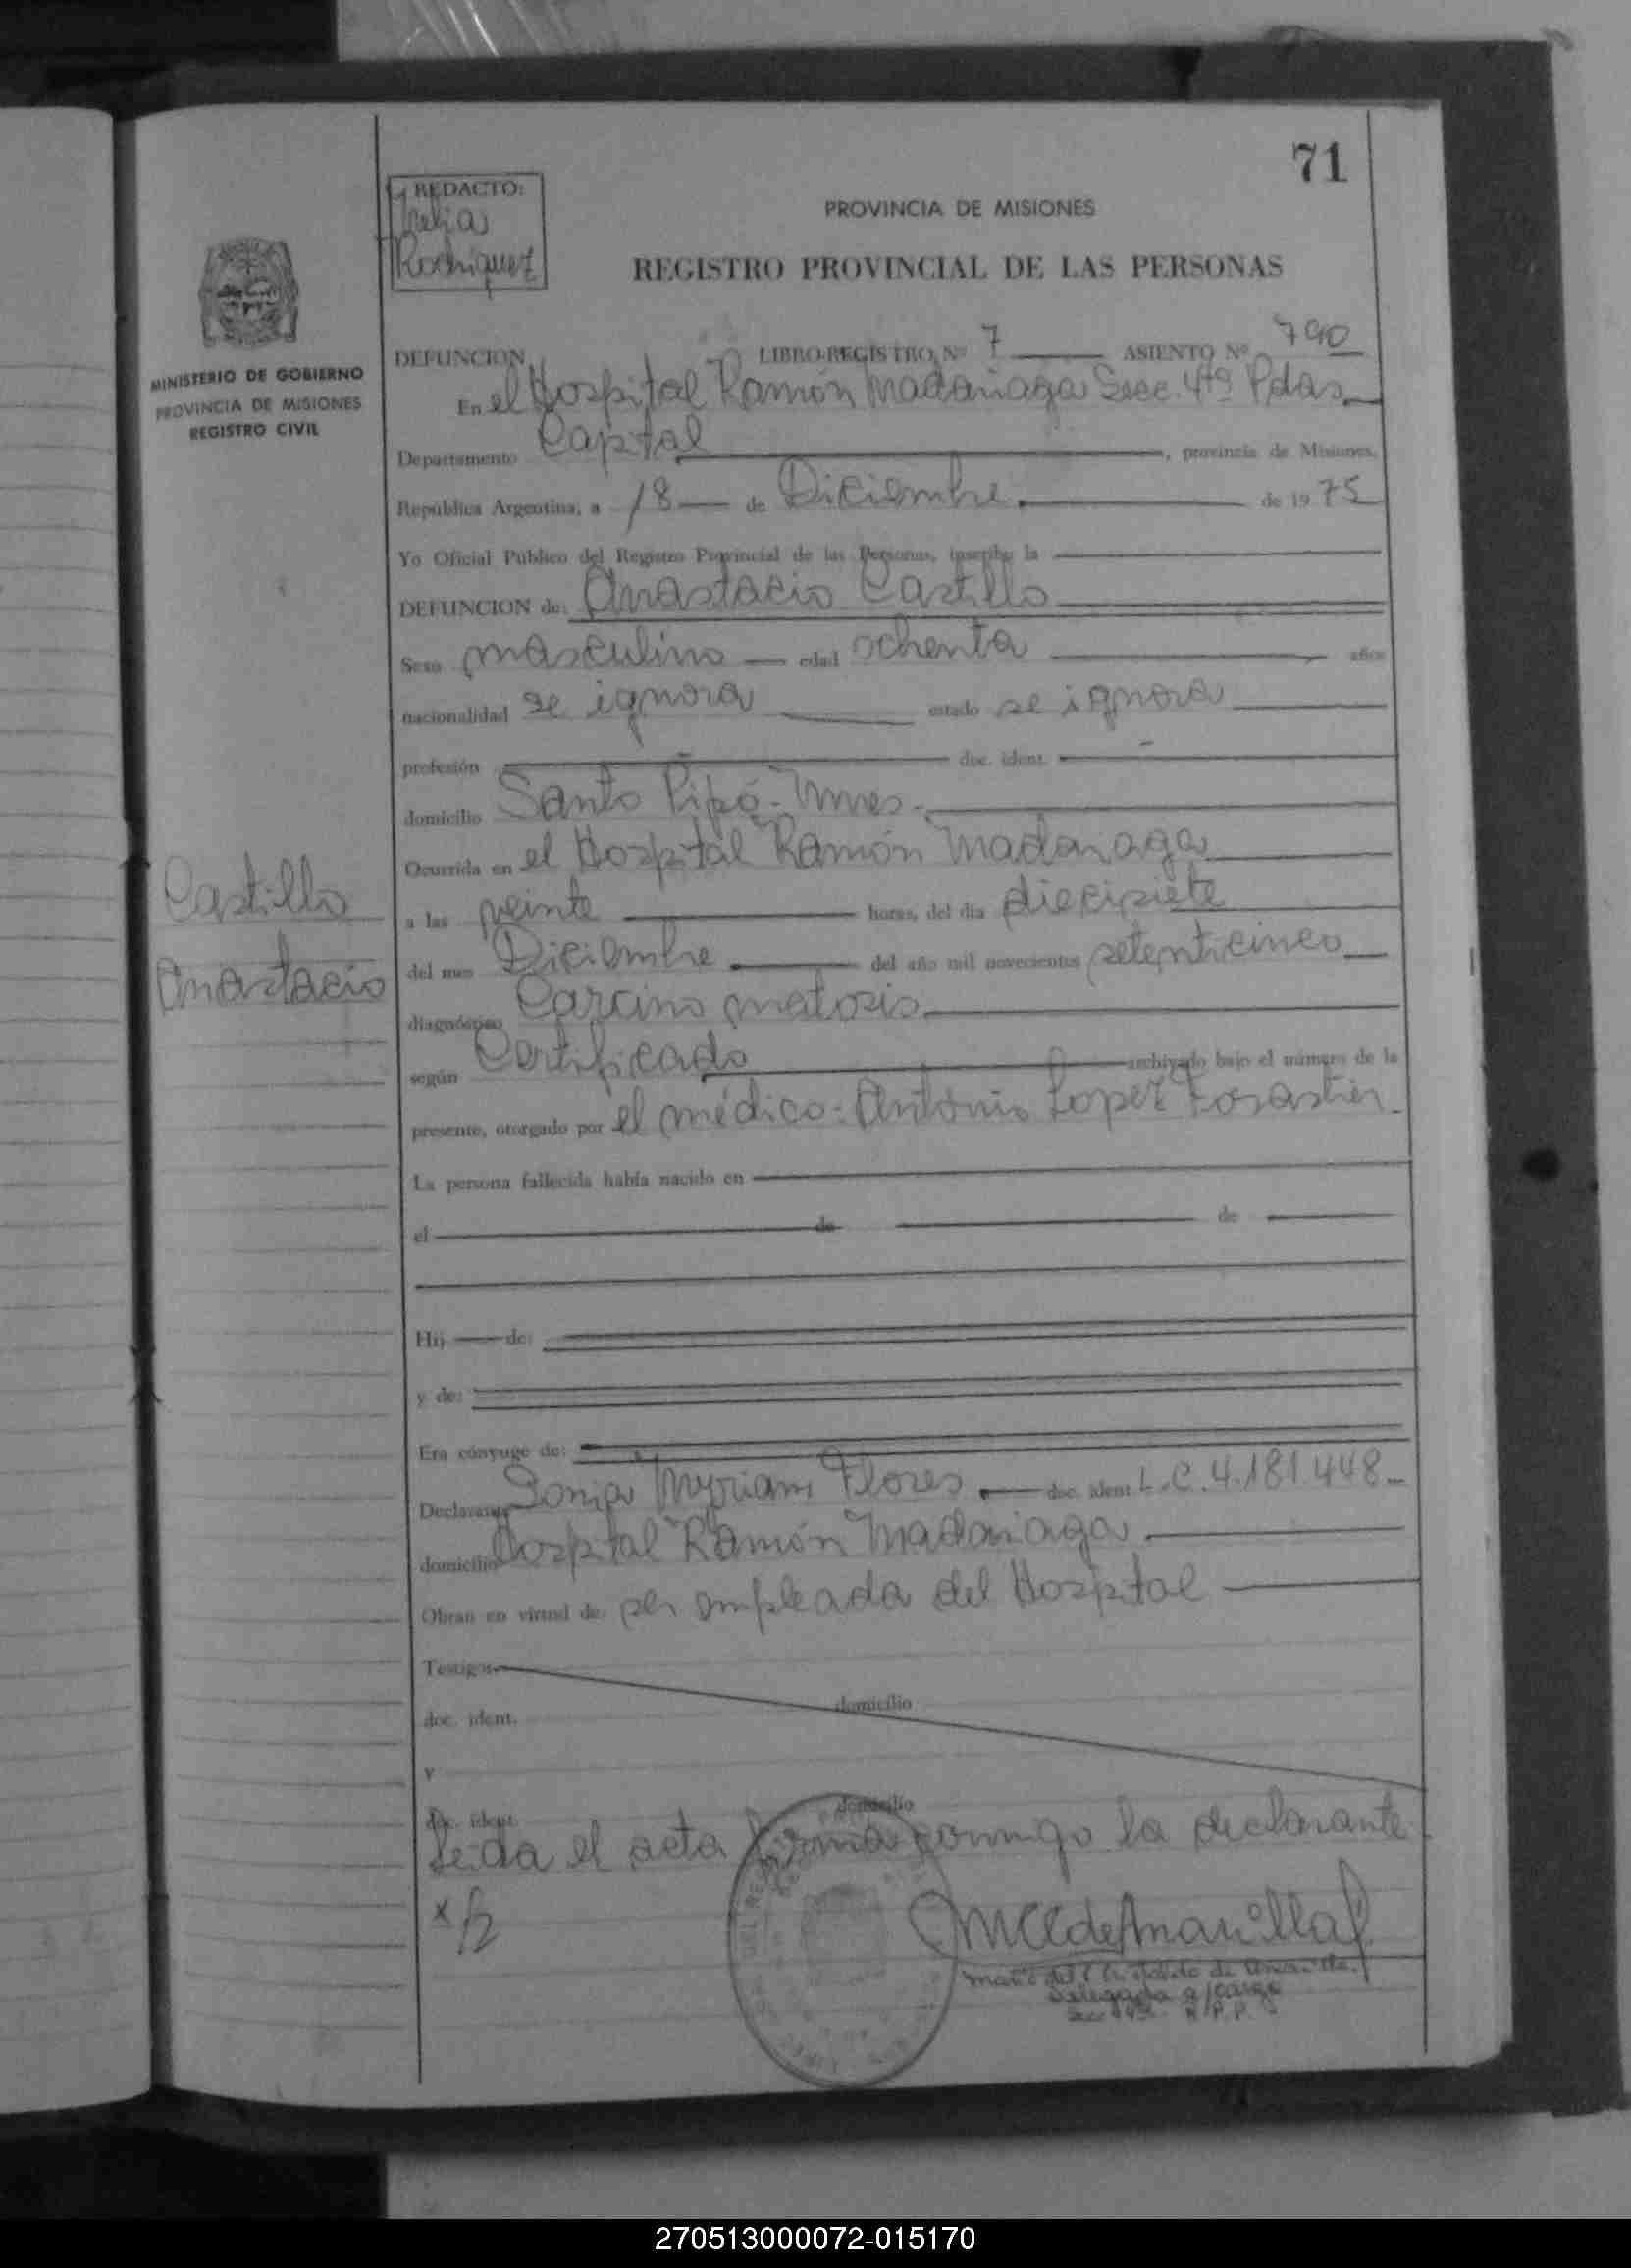 71
REDACTO:
Rodriguez
PROVINCIA DE MISIONES
REGISTRO PROVINCIAL DE LAS PERSONAS
MINISTERIO DE GOBIERNO
PROVINCIA DE MISIONES
REGISTRO CIVIL
DEFUNCION LIBRO-REGISTRO Nº 7 ASIENTO Nº 790
En el Hospital Ramón Madariaga Secc. 4ta Pdas
Departamento Capital, provincia de Misiones,
República Argentina, a 18 de Diciembre de 1975
Yo Oficial Público del Registro Provincial de las Personas, inscribo la
DEFUNCION de: Anastacio Castillo
Sexo masculino edad ochenta años
nacionalidad se ignora estado se ignora
profesión - doc. ident. -
domicilio Santo Pipó - Mnes.
Ocurrida en el Hospital Ramón Madariaga
Castillo
Anastacio
a las veinte horas, del día diecisiete
del mes Diciembre del año mil novecientos setenticinco
diagnóstico Carcinomatosis
según Certificado archivado bajo el número de la
presente, otorgado por el médico: Antonio Lopez Forastier
La persona fallecida había nacido en
el de de
Hij de:
y de:
Era cónyuge de:
Declarante Sonia Myriam Flores doc. ident. L.C. 4.181.448
domicilio Hospital Ramón Madariaga
Obran en virtud de ser empleada del Hospital
Testigos
doc. ident. domicilio
y
doc. ident. domicilio
Leida el acta firma conmigo la declarante
Delegada a/cargo
R.P.P.
270513000072-015170